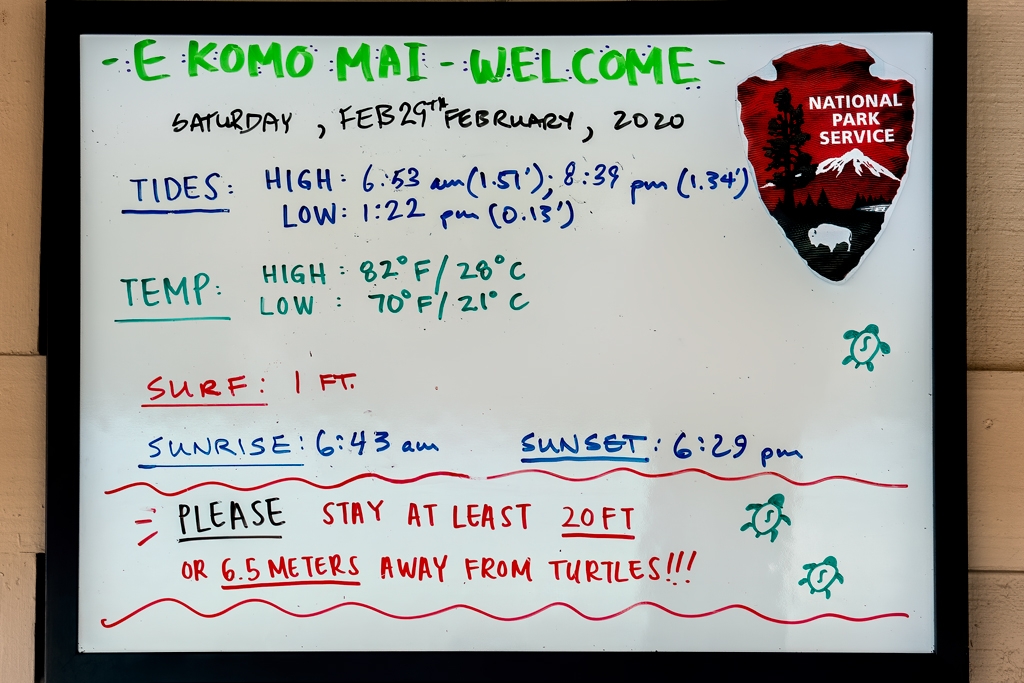 - E KOMO MAI - WELCOME -
SATURDAY , FEB 29TH FEBRUARY, 2020
NATIONAL
PARK
SERVICE
TIDES: HIGH: 6:53 am (1.51'); 8:39 pm (1.34')
LOW: 1:22 pm (0.13')
TEMP: HIGH : 82°F/28°C
LOW : 70°F/21°C
SURF: 1 FT.
SUNRISE: 6:43 am SUNSET: 6:29 pm
PLEASE STAY AT LEAST 20FT
OR 6.5 METERS AWAY FROM TURTLES!!!